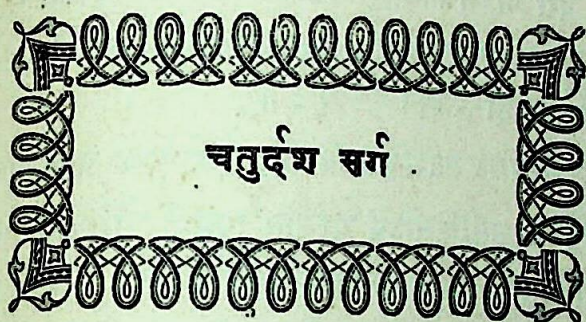 चतुर्दश सर्ग